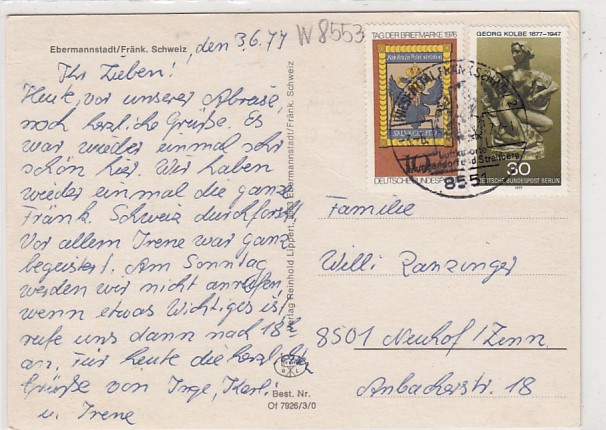 W 8553
Ebermannstadt/Fränk. Schweiz
, den 3.6.77
Ihr Lieben!
Heute, vor unserer Abreise,
noch herzliche Grüße. Es
war wieder einmal sehr
schön hier. Wir haben
wieder einmal die ganze
Fränk. Schweiz durchforst.
Vor allem Irene war ganz
begeistert. Am Sonntag
werden wir nicht anrufen,
wenn etwas Wichtiges ist,
rufe uns dann nach 18h
an. Für heute die herzlich
Grüße von Inge, Karl
u. Irene
Verlag Reinhold Lippert, Ebermannstadt/Fränk. Schweiz
Best. Nr.
Of 7926/3/0
TAG DER BRIEFMARKE 1976
10
DEUTSCHE BUNDESPOST
GEORG KOLBE 1877-1947
30
DEUTSCHE BUNDESPOST BERLIN
1977
Luftkurorte
und Streitberg
8551
Familie
Willi Ranzinger
8501 Neuhof/Zenn
Ansbacherstr. 18